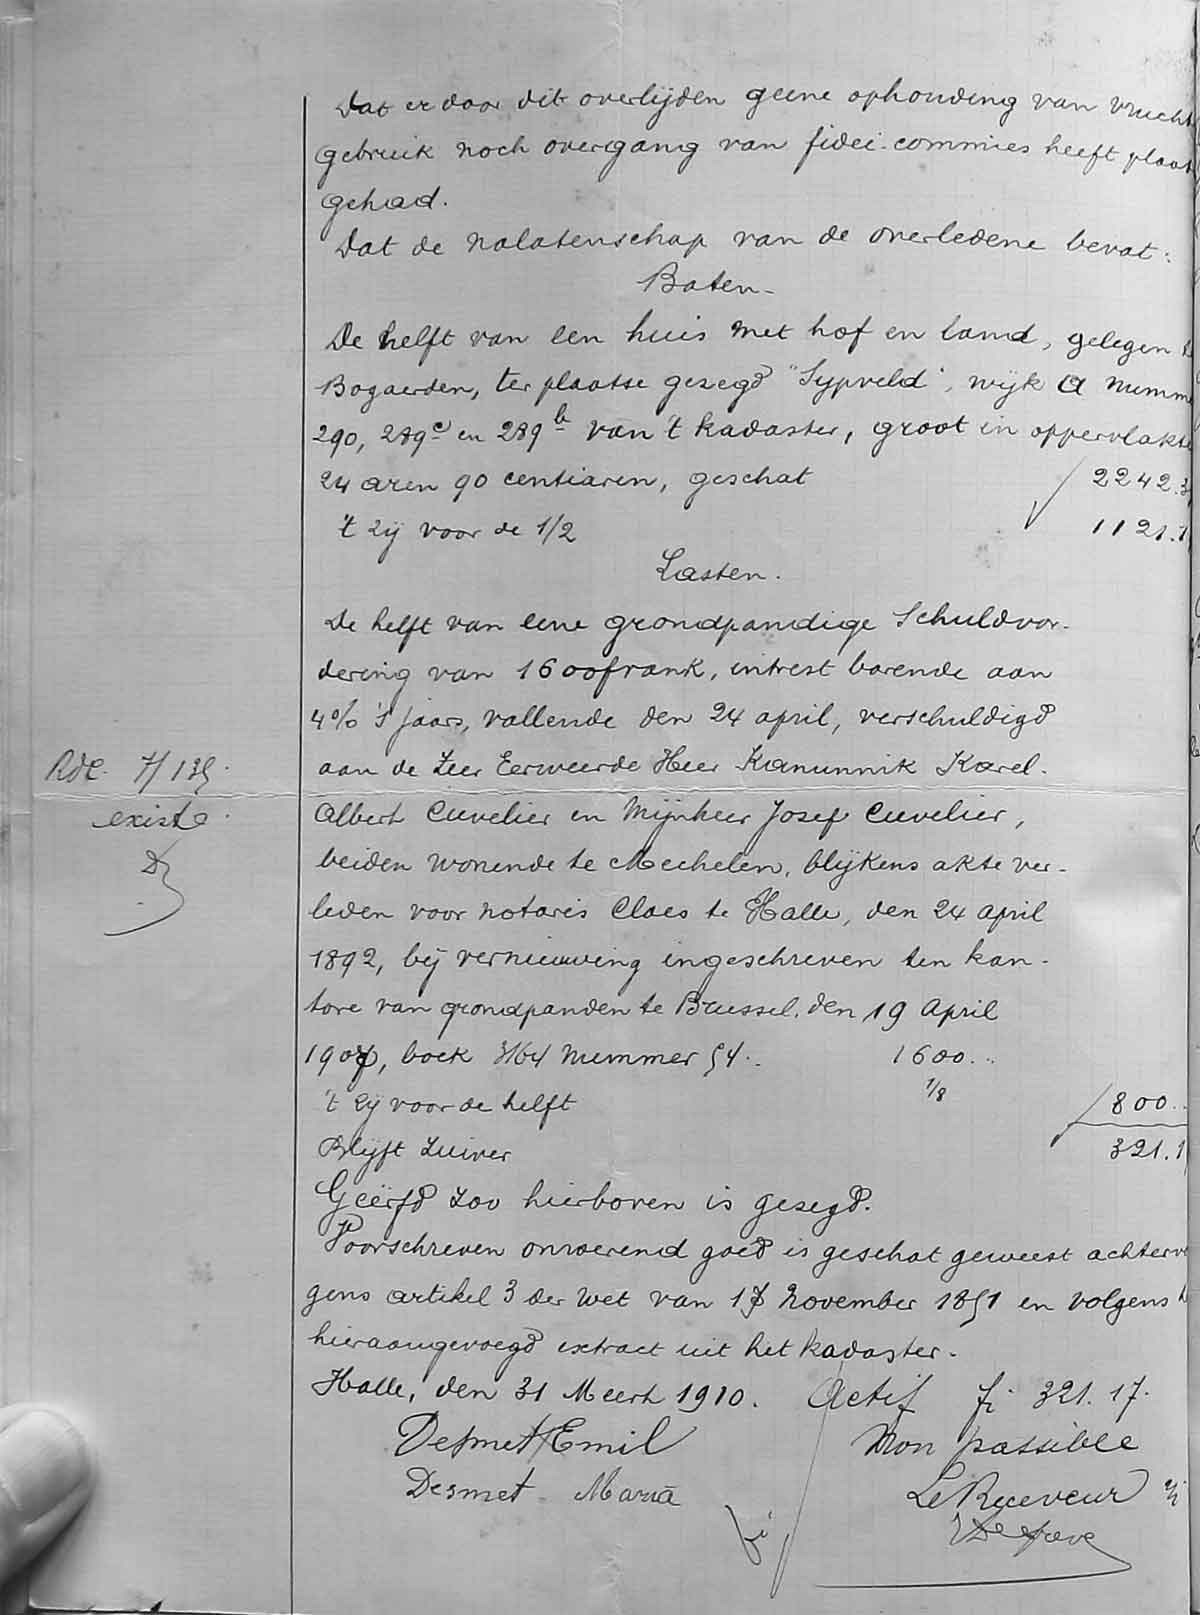 Dat er door dit overlijden geene ophouding van vrucht
gebruik noch overgang van fidei-commies heeft plaat
gehad.
Dat de nalatenschap van de overledene bevat:
Baten-
De helft van een huis met hof en land, gelegen
Bogaerden, ter plaatse gezegd "Sypveld", wijk A numm
290, 289c en 289b van 't kadaster, groot in oppervlakte
24 aren 90 centiaren, geschat 2242.3
't zij voor de 1/2 1121.1
Lasten.
De helft van eene grondpandige Schuldvor-
dering van 1600 frank, intrest barende aan
4% 's jaars, vallende den 24 april, verschuldigd
Rde. 7/135. aan de Zeer Eerweerde Heer Kanunnik Karel-
existe. Albert Cuvelier en Mijnheer Josef Cuvelier,
beiden wonende te Mechelen, blijkens akte ver-
leden voor notaris Claes te Halle, den 24 april
1892, bij vernieuwing ingeschreven ten kan-
tore van grondpanden te Brussel, den 19 April
1907, boek 3164 nummer 54.. 1600..
't zij voor de helft 1/8 800..
Blijft zuiver 321.1
Geërfd zoo hierboven is gezegd.
Voorschreven onroerend goed is geschat geweest achterv
gens artikel 3 der wet van 17 November 1851 en volgens
hieraangevoegd extract uit het kadaster.
Halle, den 31 Meert 1910. Actif f: 321.17.
Desmet Emil Non passible
Desmet Maria Le Receveur